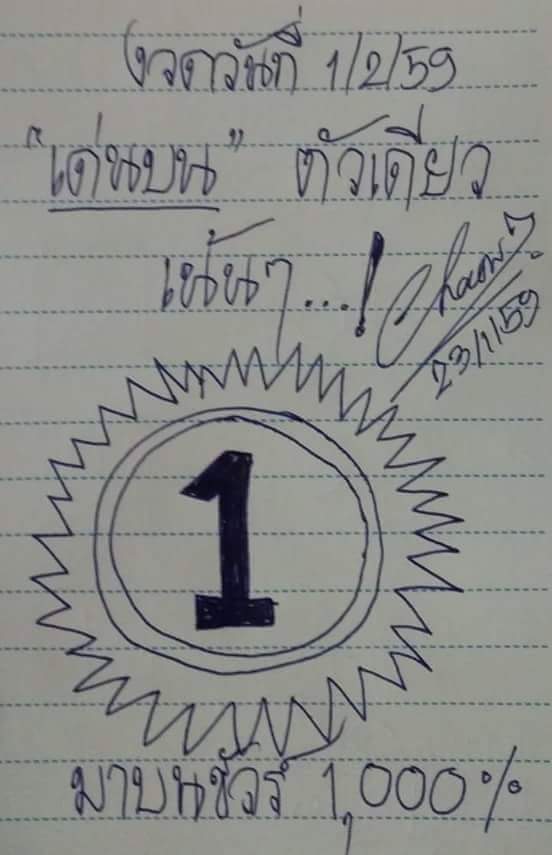 งวดวันที่ 1/2/59
"เด่นบน" ตัวเดียว
เน้นๆ...!
23/1/59
1
มาบนชัวร์ 1,000%